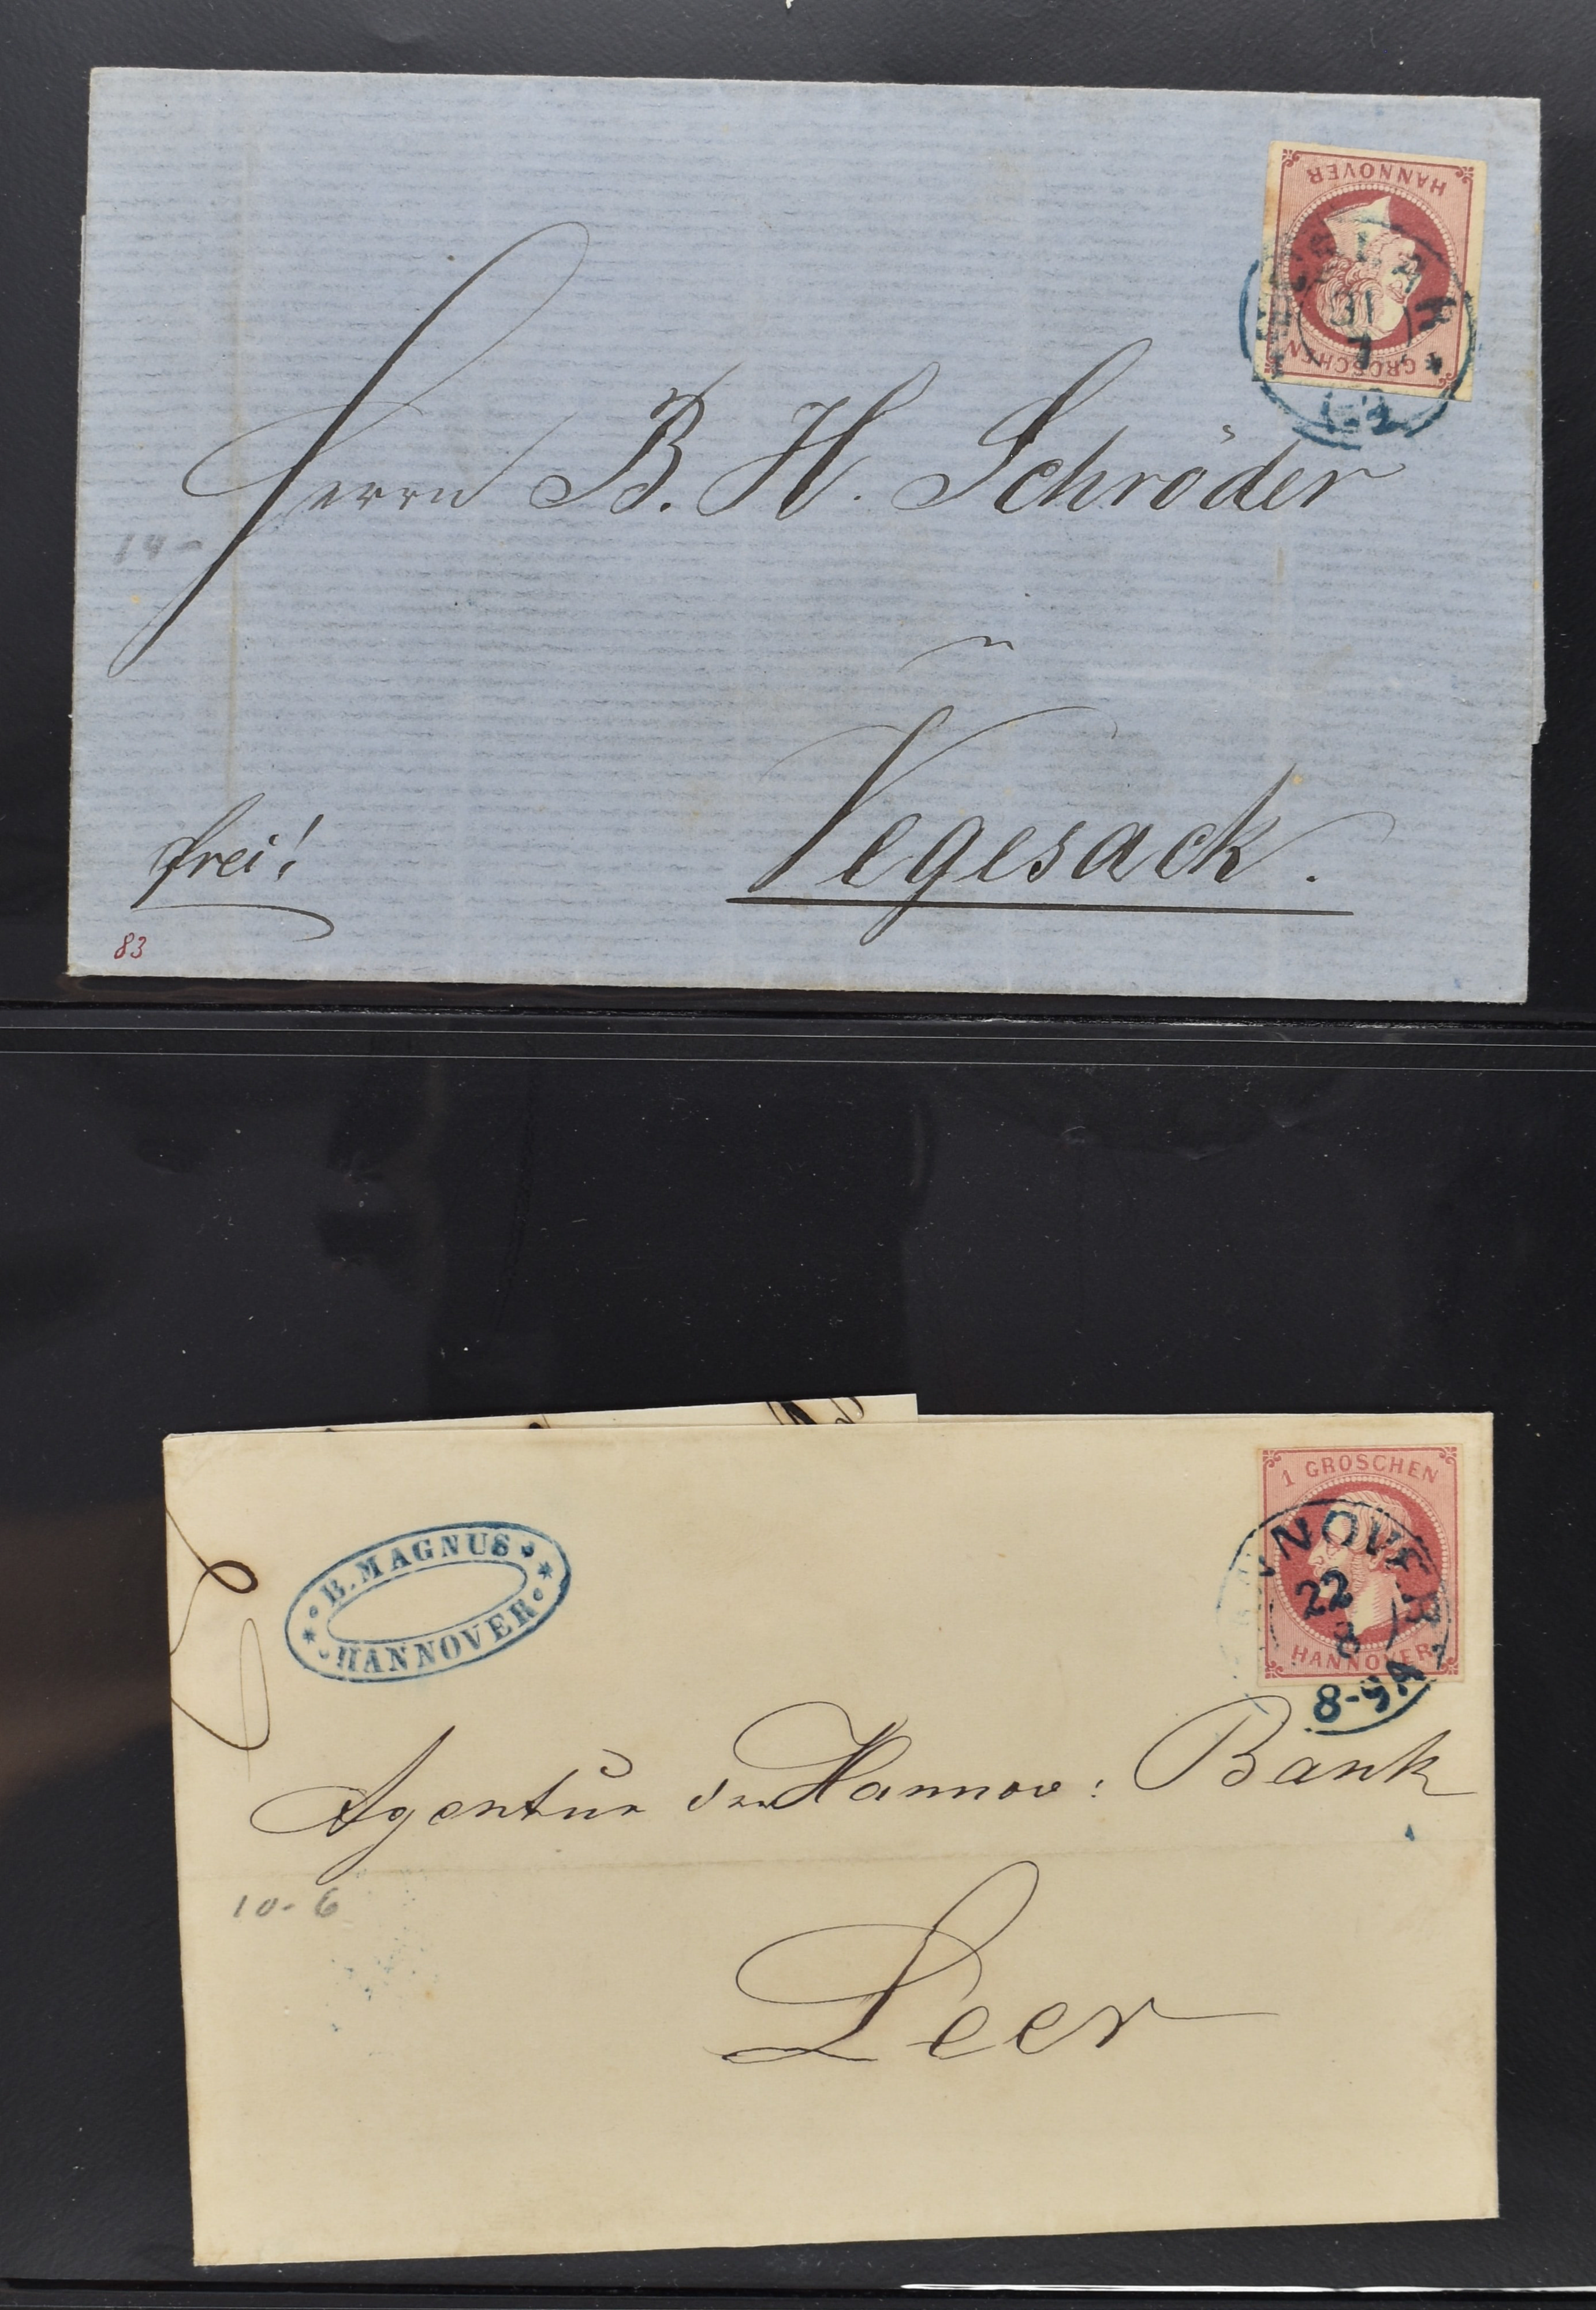 HANNOVER
GROSCHEN
31
7
Herrn B. H. Schröder
14-
Vegesack.
frei!
83
1 GROSCHEN
HANNOVER
HANNOVER
22
8
8-9A
B. MAGNUS
HANNOVER
Agentur der Hannov: Bank
10-6
Leer